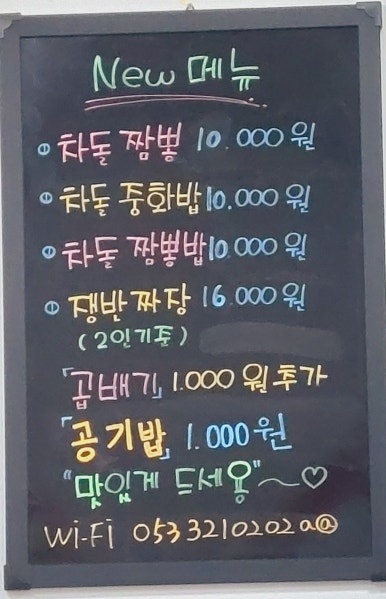 New 메뉴
차돌 짬뽕 10.000원
차돌 중화밥 10.000원
차돌 짬뽕밥 10.000원
쟁반 짜장 16.000원
(2인기준)
「곱배기」 1.000원 추가
「공기밥」 1.000원
"맛있게 드세용"~♡
Wi-Fi 0533210202a@